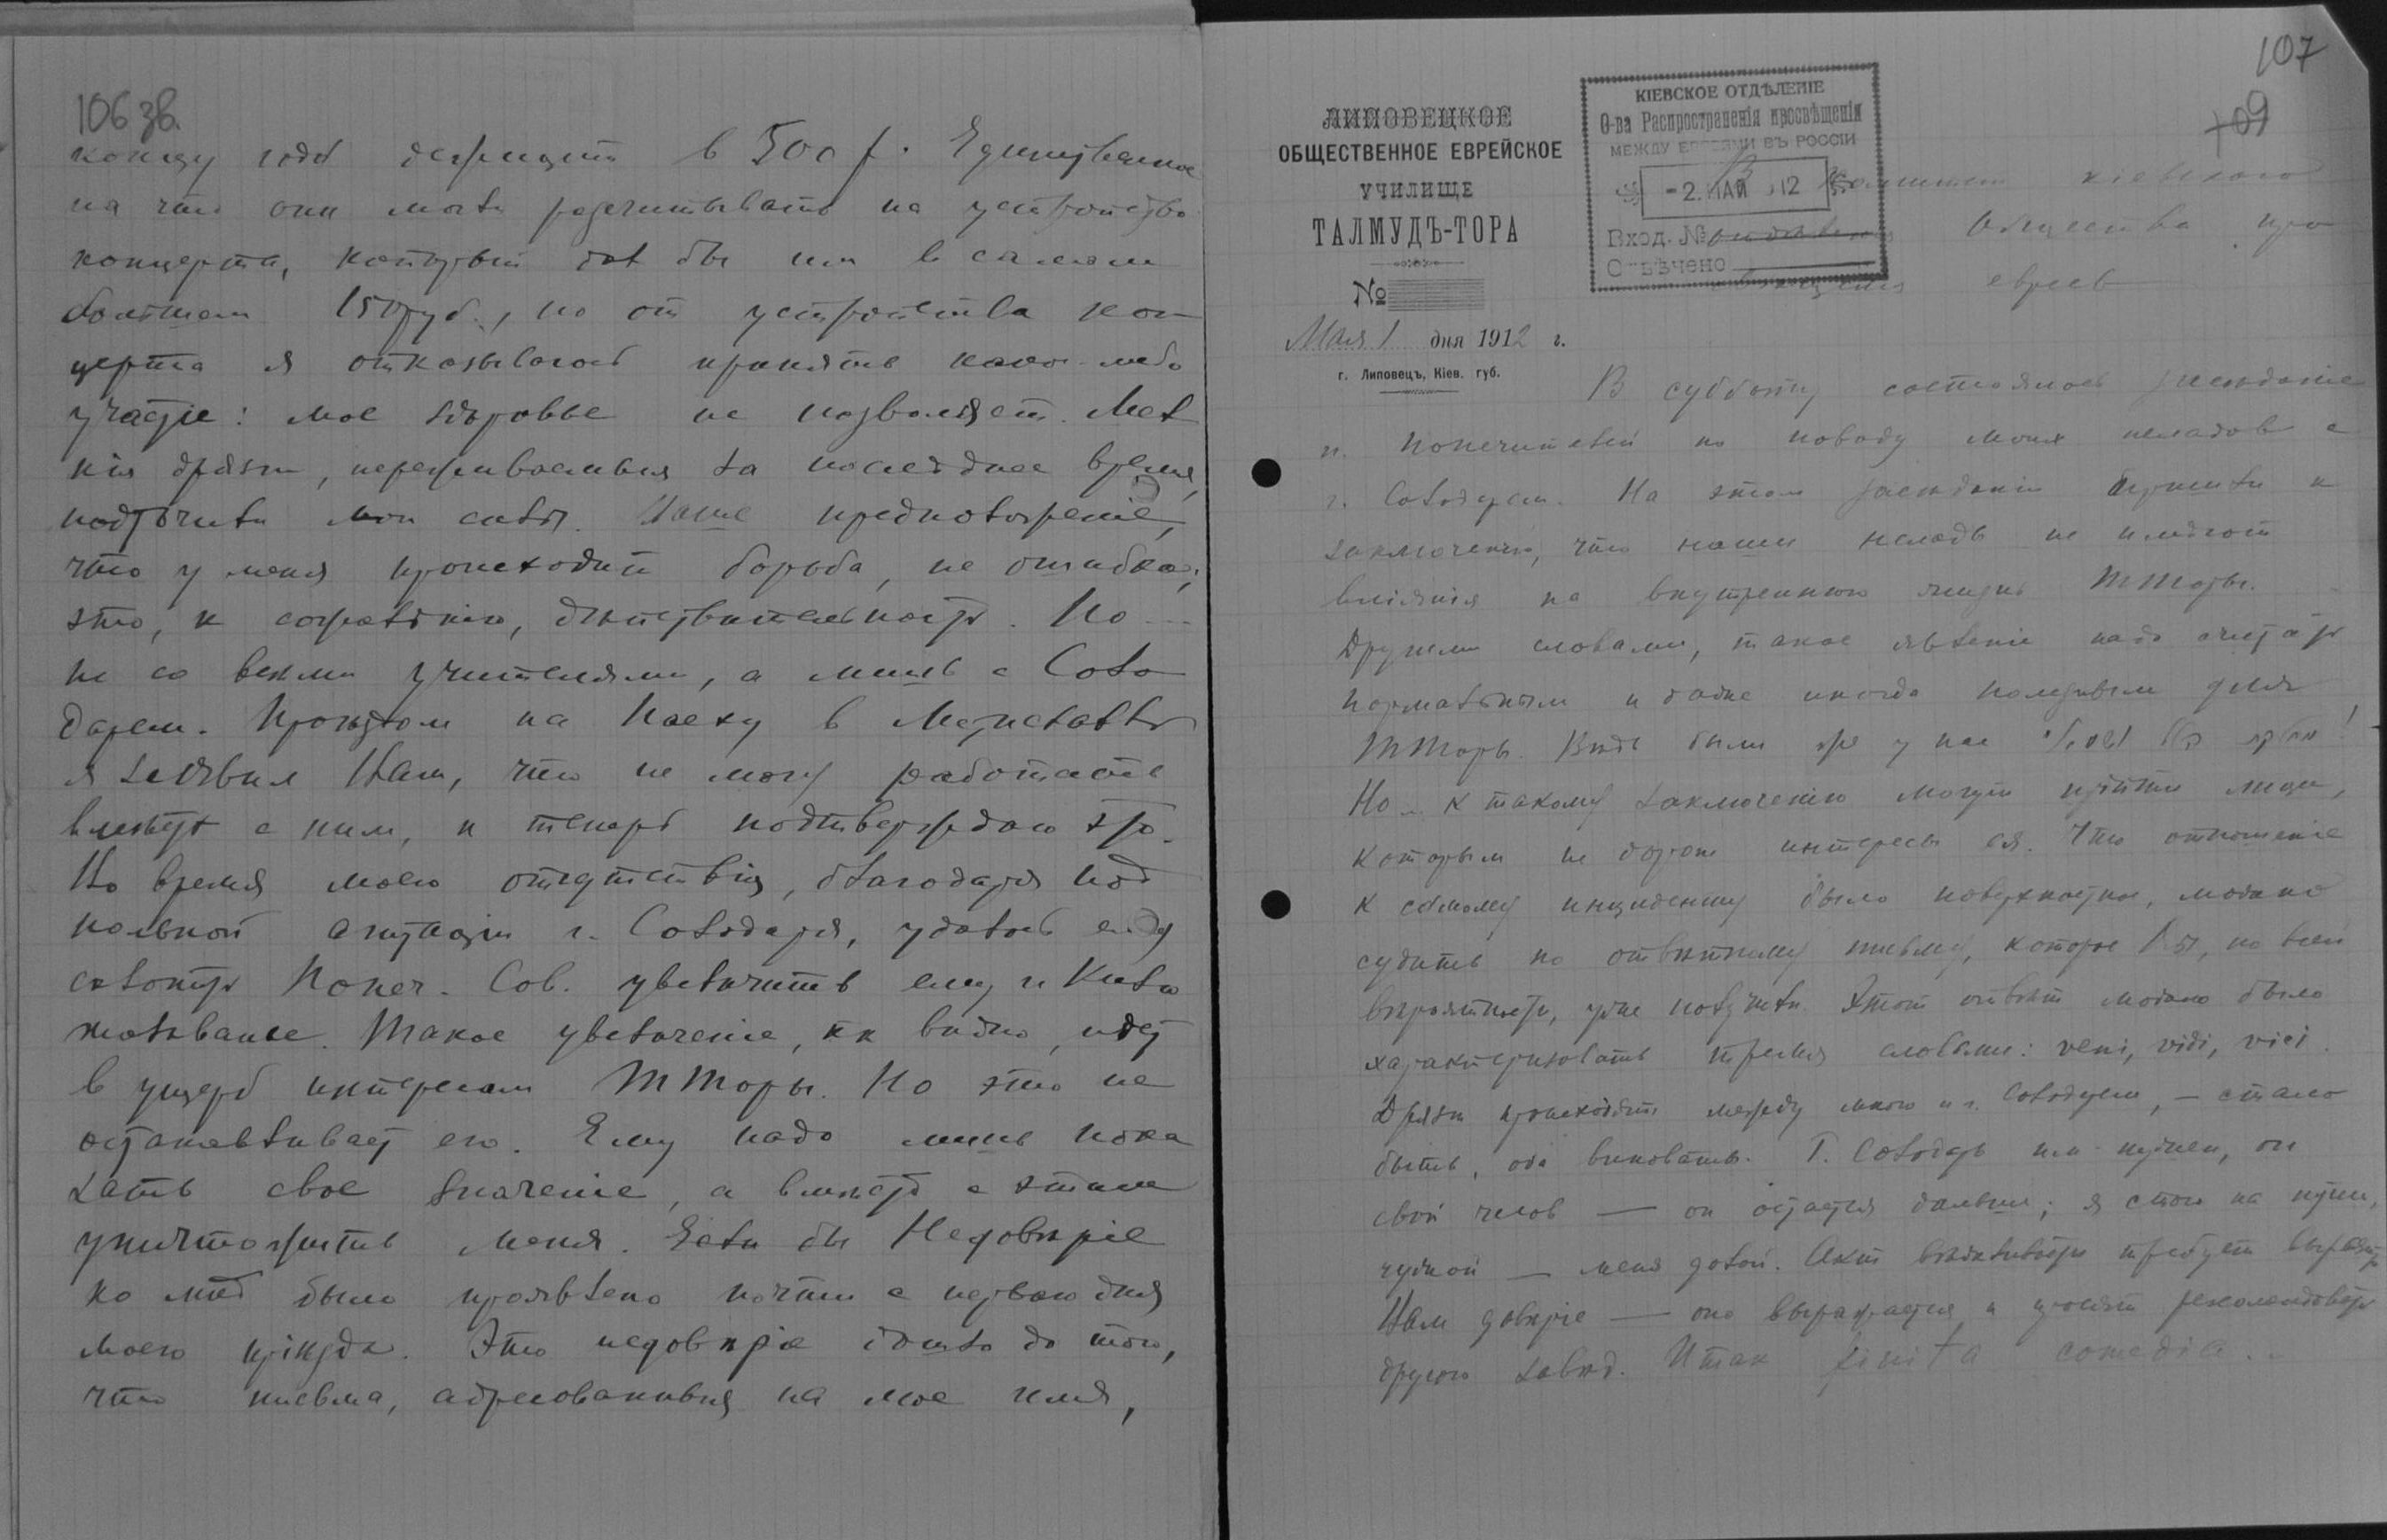 106 зв.
концу года дефицит в 500 р. Единственное
на что они могли расчитывать на устройство
концерта, который дал бы им в самом
большем 150 руб., но от устройства кон
церта я отказываюсь принять какое-либо
участіе: мое здоровье не позволяет. Мел
кія дрязги, переживаемыя за последнее время,
подточили мои силы. Ваше предположеніе,
что у меня происходит борьба, не ошибка;
это, к сожалѣнію, дѣйствительность. Но ...
не со всеми учителями, а лишь с Соло
дарем. Проѣздом на Пасху в
я заявил Вам, что не могу работать
вмѣстѣ с ним, и теперь подтверждаю это.
Во время моего отсутствія, благодаря под
польной агитаціи г. Солодаря, удалось ему
склонить Попеч. Сов. увеличить ему и
жалованье. Такое увеличеніе, как видно, идет
в ущерб интересам Т Торы. Но это не
останавливает его. Ему надо лишь пока
зать свое значеніе, а вмѣсте с этим
уничтожить меня. Недовѣріе
ко мнѣ было проявлено почти с первого дня
моего пріѣзда. Это недовѣріе дошло до того,
что письма, адресованныя на мое имя,
107
109
ЛИПОВЕЦКОЕ
ОБЩЕСТВЕННОЕ ЕВРЕЙСКОЕ
УЧИЛИЩЕ
ТАЛМУДЪ-ТОРА
№
Мая 1 дня 1912 г.
г. Липовецъ, Кіев. губ.
КІЕВСКОЕ ОТДѢЛЕНІЕ
О-ва Распространенія просвѣщенія
МЕЖДУ ЕВРЕЯМИ ВЪ РОССІИ
-2. МАЙ 912
Вход. №
Отвѣчено
В Комитет кіевского
отделенія Общества про
свѣщенія евреев
В субботу состоялось засѣданіе
г. попечителей по поводу моих неладов с
г. Солодарем. На этом засѣданіи пришли к
заключенію, что наши нелады не имѣют
вліянія на внутреннюю жизнь ТТоры.
Другими словами, такое явленіе надо считать
нормальным и даже иногда полезным для
ТТоры. Вѣдь были же у нас
Но.. к такому заключенію могут прійти люди,
которым не дороги интересы ея. Что отношеніе
к самому инциденту было поверхностное, можно
судить по отвѣтному письму, которое Вы, по всей
вѣроятности, уже получили. Этот отвѣт можно было
характеризовать тремя словами: veni, vidi, vici.
Дрязги происходят между мною и г. Солодарем, — стало
быть, оба виноваты. Г. Солодарь им нужен, он
свой челов — он остается дальше; я стою на пути,
чужой — меня долой. Акт вѣжливости требует выразить
Вам довѣріе — оно выражается и просят рекомендовать
другого завѣд. Итак finita comedia...